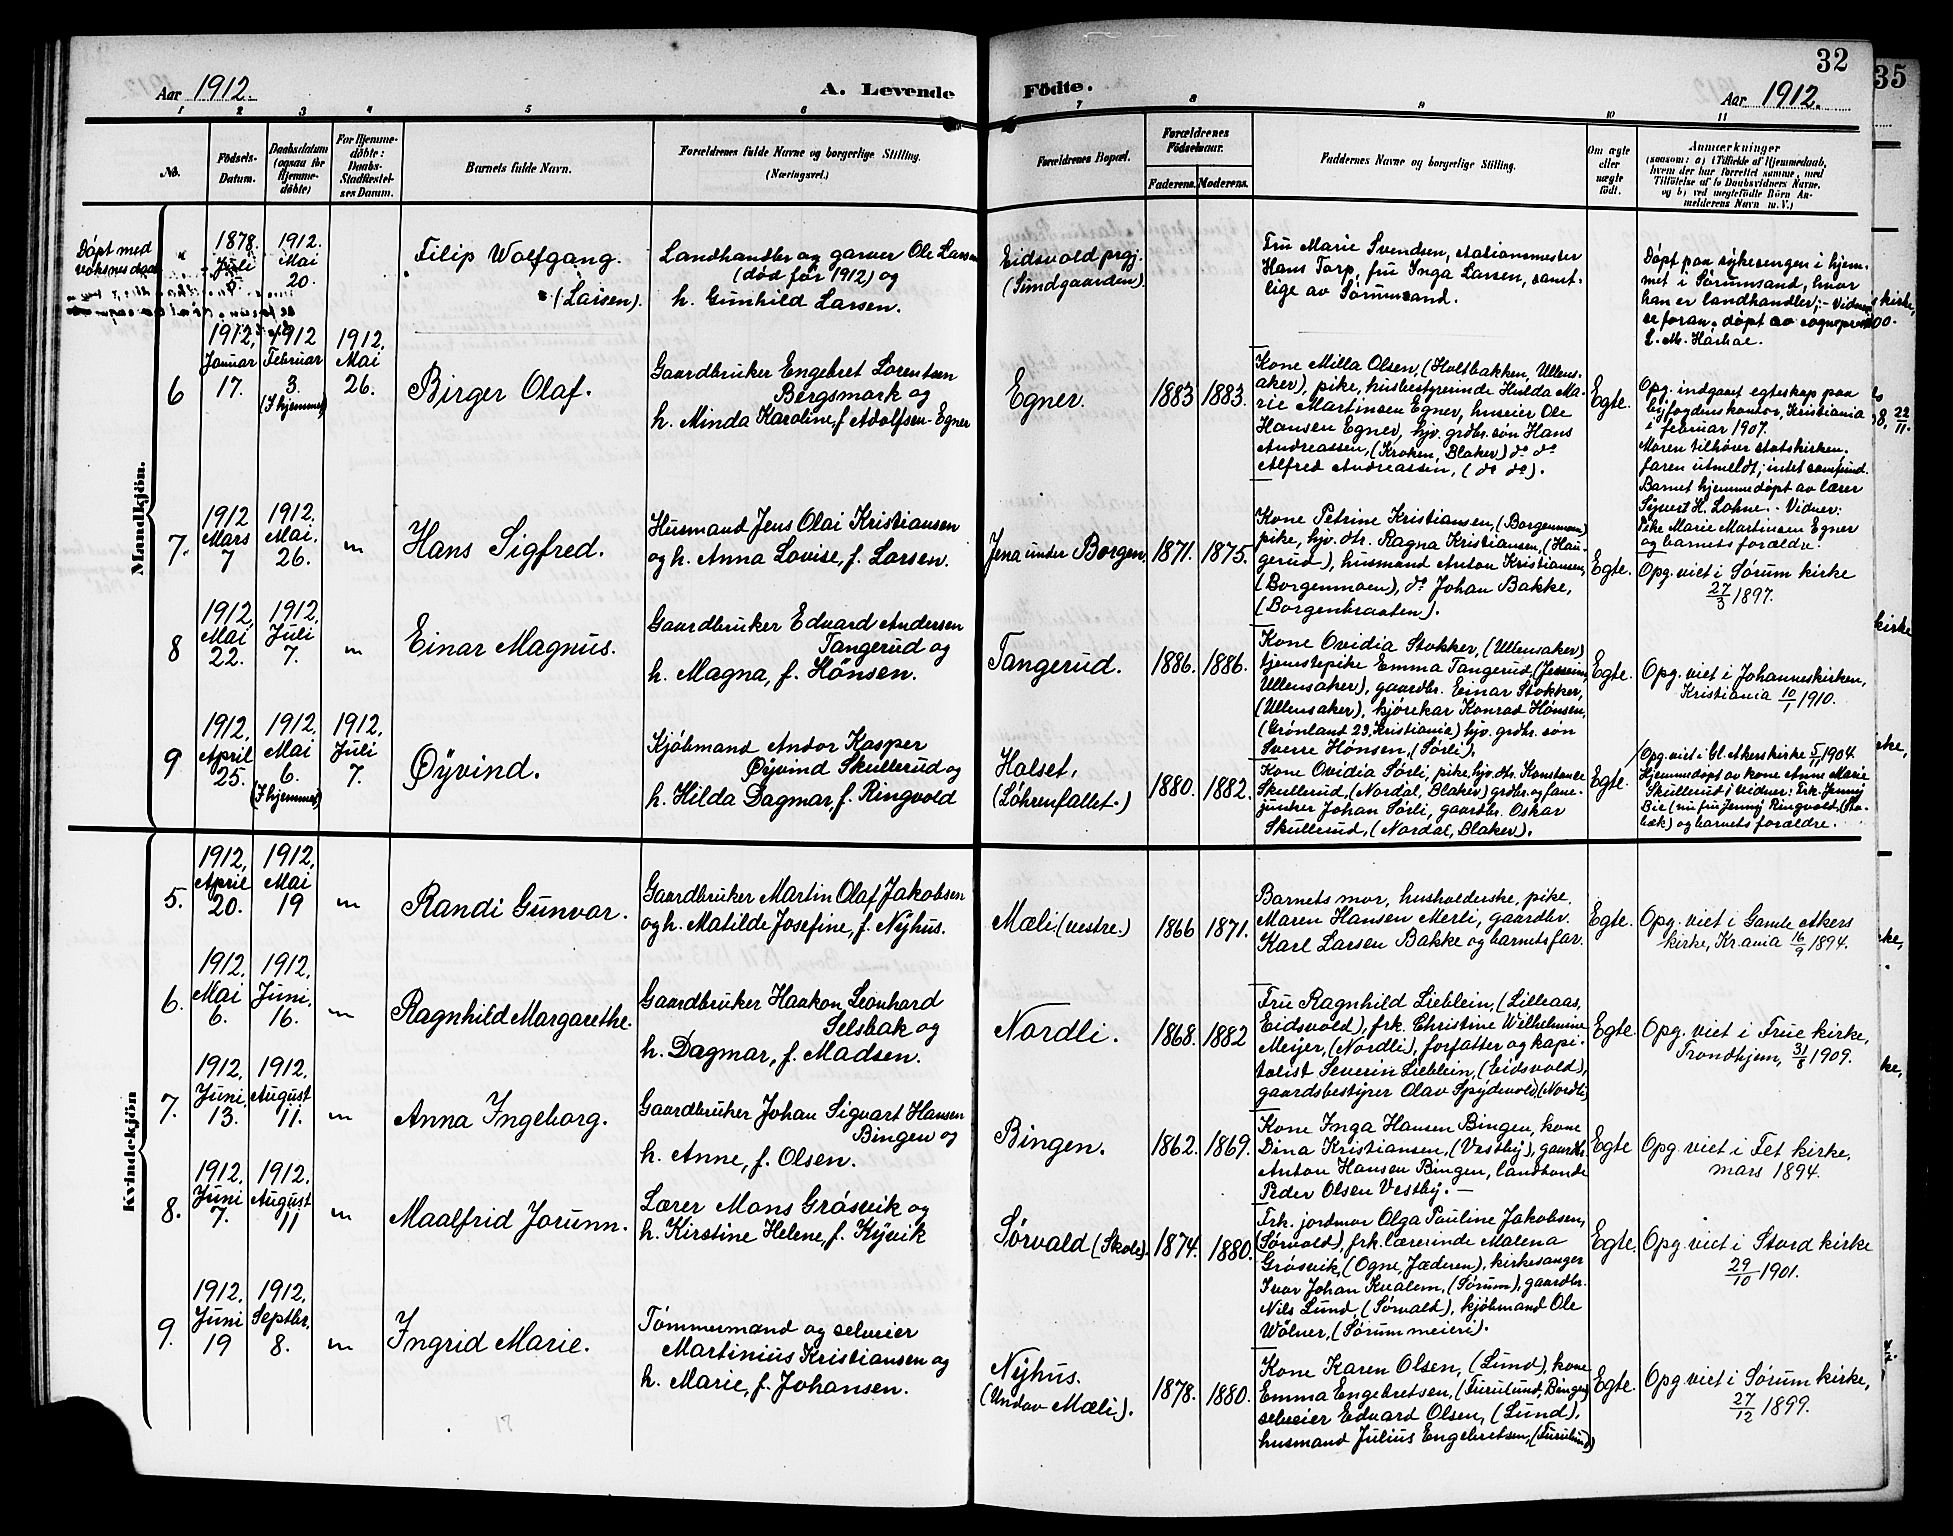 32
35
Aar 1912.
A. Levende
Födte.
Aar 1912.
1 2 3 4 5 6 7 8 9 10 11
No.
Födsels-
Datum.
Daabsdatum
(ogsaa for
Hjemme-
döbte)
For Hjemme-
döbte:
Daabs-
Stadfæstel-
ses Datum.
Barnets fulde Navn.
Forældrenes fulde Navne og borgerlige Stilling.
(Næringsvei.)
Forældrenes Bopæl.
Forældrenes
Födselsaar.
Faderens. Moderens.
Faddernes Navne og borgerlige Stilling.
Om ægte
eller
uægte
født.
Anmærkninger
(saasom: a) i Tilfælde af Hjemmedaab,
hvem der har forrettet samme, med
Tilföielse af to Daabsvidners Navne,
og b) ved uegtefödte Börn An-
melderens Navn m. V.)
Mandkjön.
Døpt med
voksnes daab
1878.
Juli
1912.
Mai
20.
Filip Wolfgang.
(Larsen).
Landhandler og garver Ole Larsen
(død før 1912) og
h. Gunhild Larsen.
Eidsvold prgj.
(Sundgaarden).
Fru Marie Svendsen, stationsmester
Hans Torp, fru Inga Larsen, samt-
lige av Sørumsand.
Døpt paa sykesengen i hjem-
met i Sørumsand, hvor
han er landhandler; - Vidner
se foran. døpt av sogneprest
6
1912,
Januar
17.
1912
Februar
3.
(I hjemmet)
1912.
Mai
26.
Birger Olaf.
Gaardbruker Engebret Lorentsen
Bergsmark og
h. Minda Karoline, f. Adolfsen-Egner
Egner.
1883 1883.
Kone Milla Olsen, (Holtbakken, Ullens-
aker), pike, husbestyrerinde Hulda Ma-
rie Martinsen Egner, huseier Ole
Hansen Egner, hjv. grdbr. søn Hans
Andreassen, (Kroken, Blaker) do do
Alfred Andreassen, (do do).
Egte.
Opg. indgaaet egteskap paa
byfogdens kontor, Kristiania
i februar 1907.
Moren tilhører statskirken,
faren utmeldt; intet samfund.
Barnet hjemmedøpt av lærer
Sigvert H. Lohne. - Vidner:
Pike Marie Martinsen Egner
og barnets forældre.
7.
1912
Mars
7
1912.
Mai.
26.
"
Hans Sigfred.
Husmand Jens Olai Kristiansen
og h. Anna Lovise, f. Larsen.
Jena under Borgen.
1871. 1875.
Kone Petrine Kristiansen, (Borgenmoen)
pike, hjv. dtr. Ragna Kristiansen, (Hau-
gerud), husmand Anton Kristiansen,
(Borgenmoen), do Johan Bakke,
(Borgenbraaten).
Egte.
Opg. viet i Sørum kirke
27/3 1897.
8
1912,
Mai
22.
1912.
Juli
7.
"
Einar Magnus.
Gaardbruker Edvard Andersen
Tangerud og
h. Magna, f. Hønsen.
Tangerud.
1886. 1886.
Kone Ovidia Stokker, (Ullensaker)
tjenestepike Emma Tangerud, (Jessheim,
Ullensaker), gaardbr. Einar Stokker,
(Ullensaker), kjørekar Konrad Hønsen,
(Grønland 23, Kristiania) hjv. grdbr. søn
Sverre Hønsen, (Sørli).
Egte.
Opg. viet i Johanneskirken,
Kristiania 10/1 1910.
9
1912,
April
25.
1912.
Mai
6.
(I hjemmet)
1912.
Juli
7.
Øyvind.
Kjøbmand Andor Kasper
Øyvind Skullerud og
h. Hilda Dagmar, f. Ringvold
Holset,
(Løhrenfallet.)
1880. 1882.
Kone Ovidia Sørli, pike, hjv. dtr. Konstance
Skullerud, (Nordal, Blaker) grdbr. og fane-
junker Johan Sørli, gaardbr. Oskar
Skullerud, (Nordal, Blaker).
Egte.
Opg. viet i Gl. Akers kirke 5/11 1904.
Hjemmedøpt av kone Anne Marie
Skullerud; vidner: Frk. Jenny
Bie (nu fru Jenny Ringvold, (Sta-
bæk) og barnets forældre.
Kvindekjön
5.
1912,
April
20.
1912,
Mai
19
"
Randi Gunvor.
Gaardbruker Martin Olaf Jakobsen
og h. Matilde Josefine, f. Nyhus.
Mæli (vestre.)
1866 1871.
Barnets mor, husholderske, pike,
Maren Hansen Merli, gaardbr.
Karl Larsen Bakke og barnets far.
Egte.
Opg. viet i Gamle Akers
kirke, Kr.ania 16/9 1894.
6.
1912.
Mai
6.
1912.
Juni,
16.
"
Ragnhild Margarethe.
Gaardbruker Haakon Leonhard
Selsbak og
h. Dagmar, f. Madsen.
Nordli.
1868. 1882
Fru Ragnhild Lieblein, (Lilleaas,
Eidsvold), frk. Christine Wilhelmine
Meijer, (Nordli), forfatter og kapi-
talist Severin Lieblein, (Eidsvold),
gaardsbestyrer Olav Spydevold, (Nordli)
Egte.
Opg. viet i Frue kirke,
Trondhjem, 31/8 1909.
7.
1912.
Juni,
13.
1912.
August
11.
"
Anna Ingeborg.
Gaardbruker Johan Sigvart Hansen
Bingen og
h. Anne, f. Olsen.
Bingen.
1862. 1869.
Kone Inga Hansen Bingen, kone
Dina Kristiansen, (Vestby), gaardbr.
Anton Hansen Bingen, landhandler
Peder Olsen Vestby. -
Egte
Opg. viet i Fet kirke,
mars 1894.
8.
1912.
Juni
7.
1912.
August
11
"
Maalfrid Jorunn.
Lærer Mons Grøsvik og
h. Kirstine Helene, f. Kyvik
Sørvald (Skole).
1874. 1880.
Frk. jordmor Olga Pauline Jakobsen,
(Sørvold), frk. lærerinde Malena
Grøsvik, (Ogne, Jæderen), kirkesanger
Ivar Johan Kvalem, (Sørum), gaardbr.
Nils Lund, (Sørvald), kjøbmand Ole
Wølner, (Sørum meieri).
Egte.
Opg. viet i Stord kirke
29/10 1901.
9.
1912.
Juni
19
1912.
Septbr.
8.
"
Ingrid Marie.
Tømmermand og selveier
Martinius Kristiansen og
h. Marie, f. Johansen.
Nyhus.
(Undav Mæli).
1878. 1880.
Kone Karen Olsen, (Lund), kone
Emma Engebretsen, (Furulund, Bingen)
selveier Edvard Olsen, (Lund),
husmand Julius Engebretsen, (Furulund)
Egte.
Opg. viet i Sørum kirke,
27/12 1899.